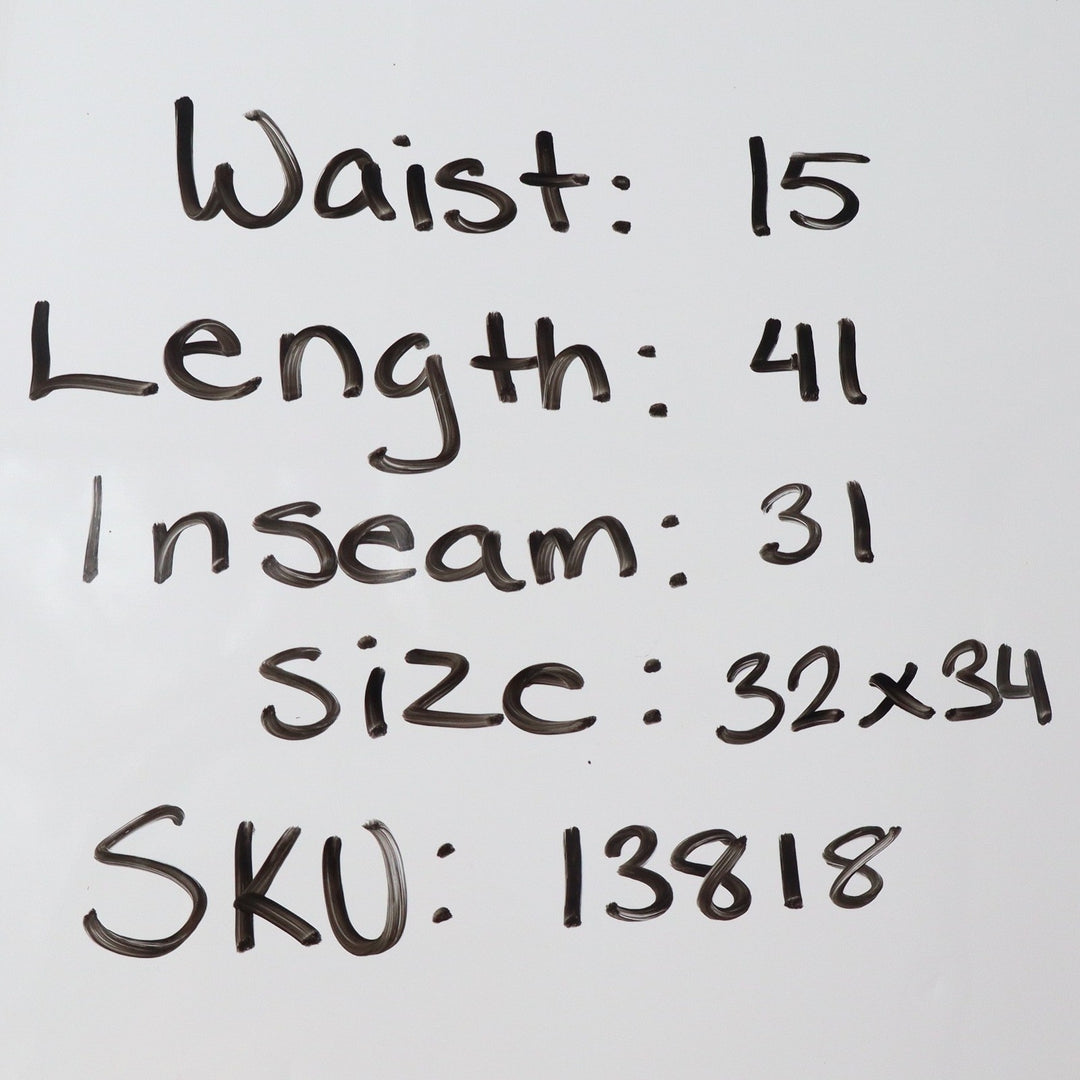 Waist: 15
Length: 41
Inseam: 31
Size: 32x34
SKU: 13818